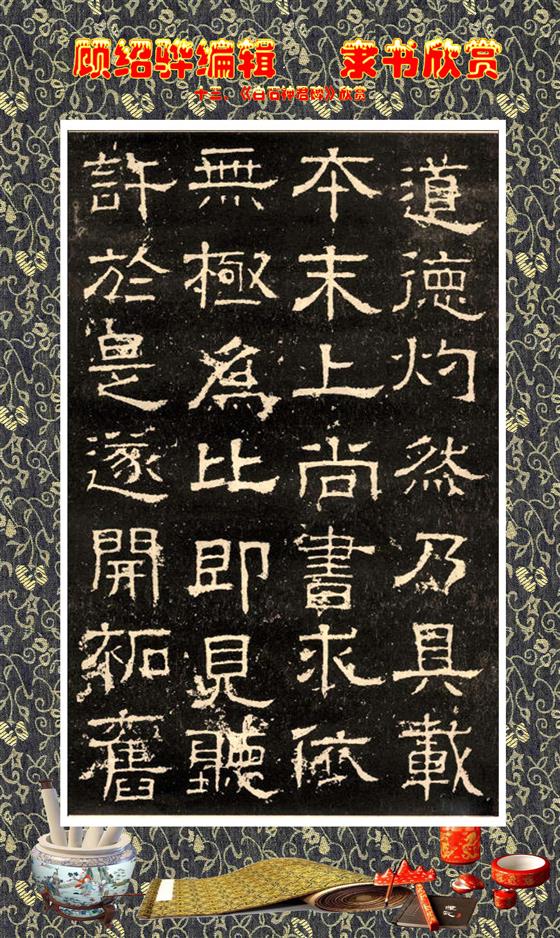 顾绍骅编辑 隶书欣赏
十三、《白石神君碑》欣赏
道德灼然乃具載
本末上尚書求依
無極爲比即見聽
許於是遂開拓舊